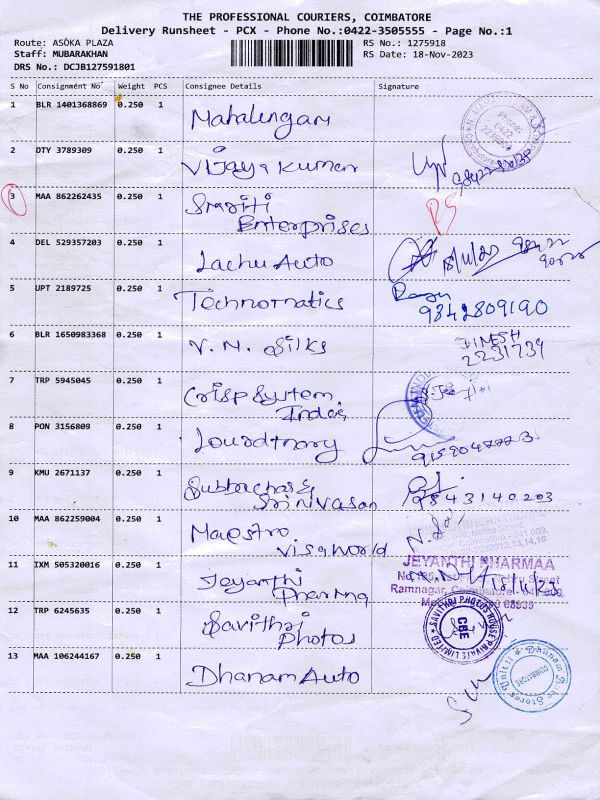 THE PROFESSIONAL COURIERS, COIMBATORE
Delivery Runsheet - PCX - Phone No.:0422-3505555 - Page No.:1
Route: ASOKA PLAZA
RS No.: 1275918
Staff: MUBARAKHAN
RS Date: 18-Nov-2023
DRS No.: DCJB127591801
S No Consignment No Weight PCS Consignee Details Signature
1 BLR 1401368869 0.250 1 Mahalingam
2 DTY 3789309 0.250 1 Vijaya Kumar
3 MAA 862262435 0.250 1 Smriti
Enterprises
4 DEL 529357203 0.250 1 Lachu Auto 18/11/23
5 UPT 2189725 0.250 1 Technomatics
9842809190
6 BLR 1650983368 0.250 1 V. N. Silks DINESH
2231739
7 TRP 5945045 0.250 1 Crisp System
India
8 PON 3156809 0.250 1
9 KMU 2671137 0.250 1
Srinivasan 9843140203
10 MAA 862259004 0.250 1 Maestro
Visa World
11 IXM 505320016 0.250 1 Jeyanthi JEYANTHI PHARMAA
Pharma Ramnagar, Coimbatore
12 TRP 6245635 0.250 1 Savithri SAVITHRI PHOTOS HOUSE PRIVATE LIMITED
Photos CBE
13 MAA 106244167 0.250 1 Dhanam Auto